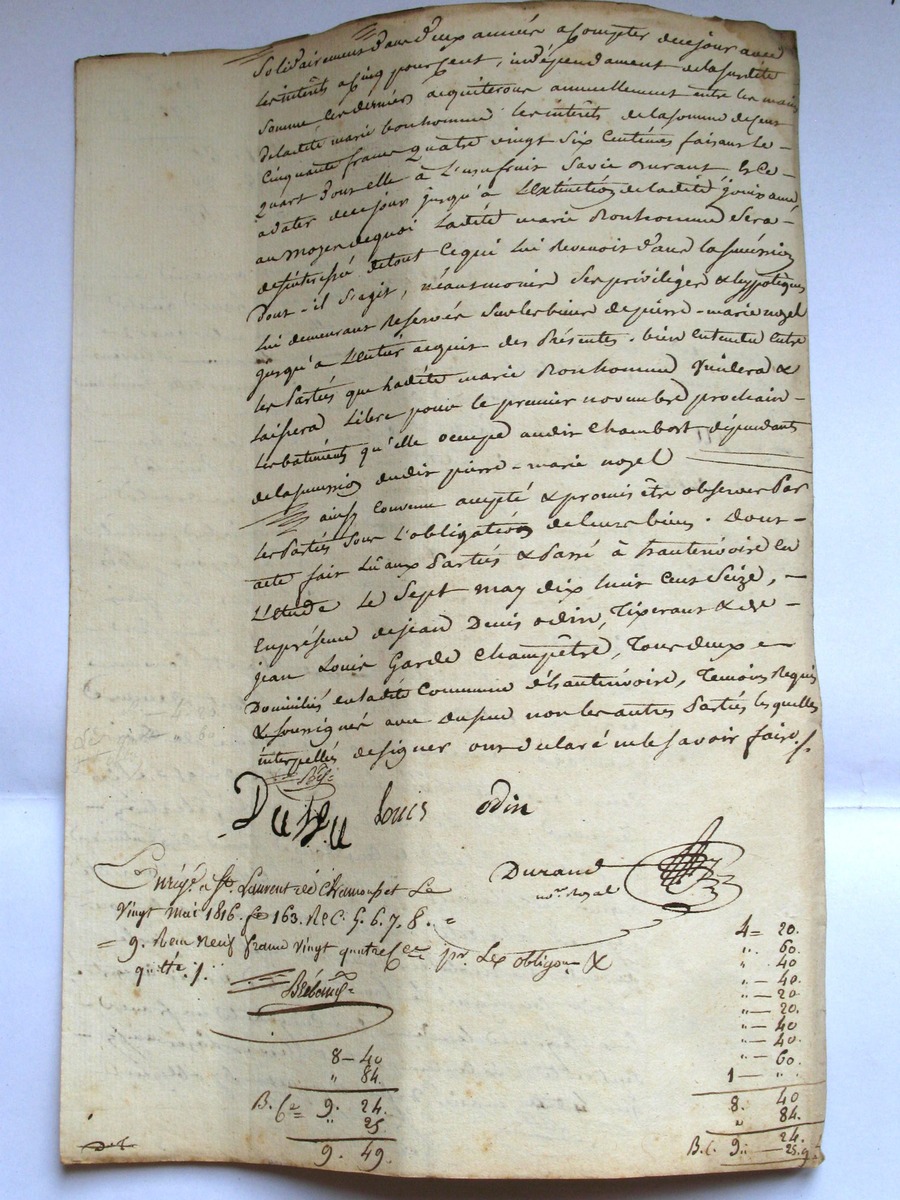 Solidairement dans deux années a compter de ce jour avec
les intérêts a cinq pour cent, indépendament de la susdite
somme ces derniers acquiterons annuellement entre les mains
de ladite marie bonhomme les intérêts de la somme de
cinquante francs quatre vingt six Centimes faisant le -
quart dont elle à L'usufruit sa vie durant & ce -
a dater de ce jour jusqu'à L'extinction de ladite jouissance
au moyen de quoi Ladite marie Bonhomme Sera -
desinterressé de tout ce qui lui Revenoit dans la succession
Dont-il S'agit, néantmoins Ses privilèges & hypotèques
lui demeurant Reservés Sur les biens de pierre-marie nozel
jusqu'à L'entier acquit des Présentes. bien Entendu Entre
les Parties que Ladite marie Bonhomme Vuidera &
laissera Libre pour le premier novembre prochain -
les batiments qu'elle ocupe audit Chambort dépendants
de la succession dudit pierre-marie nozel
ainsy Convenu accepté & promis être observer Par
les Parties Sous L'obligation de leurs biens. Dont -
acte fait Lu aux Parties & Passé à hauterivoire En
L'étude Le Sept may dix huit Cent Seize, -
En présence de jean Denis odin, Tixerant & de -
jean Louis Garde Champêtre, Tous deux
Domiciliés en ladite Commune d'hauterivoire, Temoins Requis
& soussignés avec non les autres Parties lesquelles
interpellés de signer ont déclaré ne le savoir faire ./.
Louis odin
Durand
no.re Royal
Enreg.é a St. Laurent de Chamousset Le
Vingt mai 1816. fo 163. R.o C. 5. 6. 7. 8. =
= 9. Reçu neuf francs vingt quatre C.es pr. Les obligon. &
quitte ./.
4 = 20.
" . 60.
" . 40
" — 40.
" — 20
" — 20.
" — 40
" — 40.
" — 60.
1 — " .
8. 40
" 84.
B. C. 9. 24.
25.
8 — 40
" 84.
B. C.es 9. 24.
" 25.
9. 49.